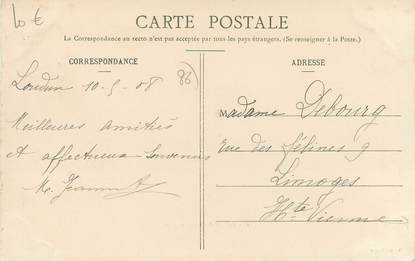 10 €
CARTE POSTALE
La Correspondance au recto n'est pas acceptée par tous les pays étrangers. (Se renseigner à la Poste.)
CORRESPONDANCE
Loudun 10-5-08 86)
Meilleures amitiés
et affectueux souvenirs
ADRESSE
Madame Debourg
rue des 9
Limoges
Hte Vienne